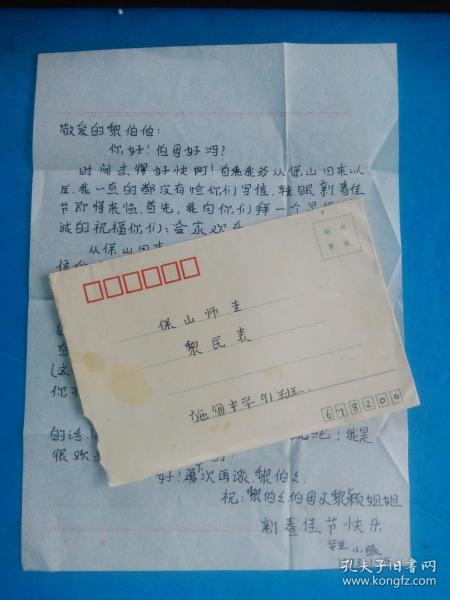 敬爱的黎伯伯:
你好!伯母好吗?
时间过得好快啊!自从保山回来以
后,我一直的都没有给你们写信,转眼新春佳
节即将来临,首先,我向你们拜一个早
诚的祝福你们:合家欢乐
从保山回来
信
贴邮
票处
保山师专
黎民表
施甸中学91班
678200
的
在
(这
你
的话,
吧!我是
很欢
好!再次再谈.黎伯父
祝:黎伯父伯母及黎颖姐姐
新春佳节快乐
学生
孔夫子旧书网
www.kongfz.com